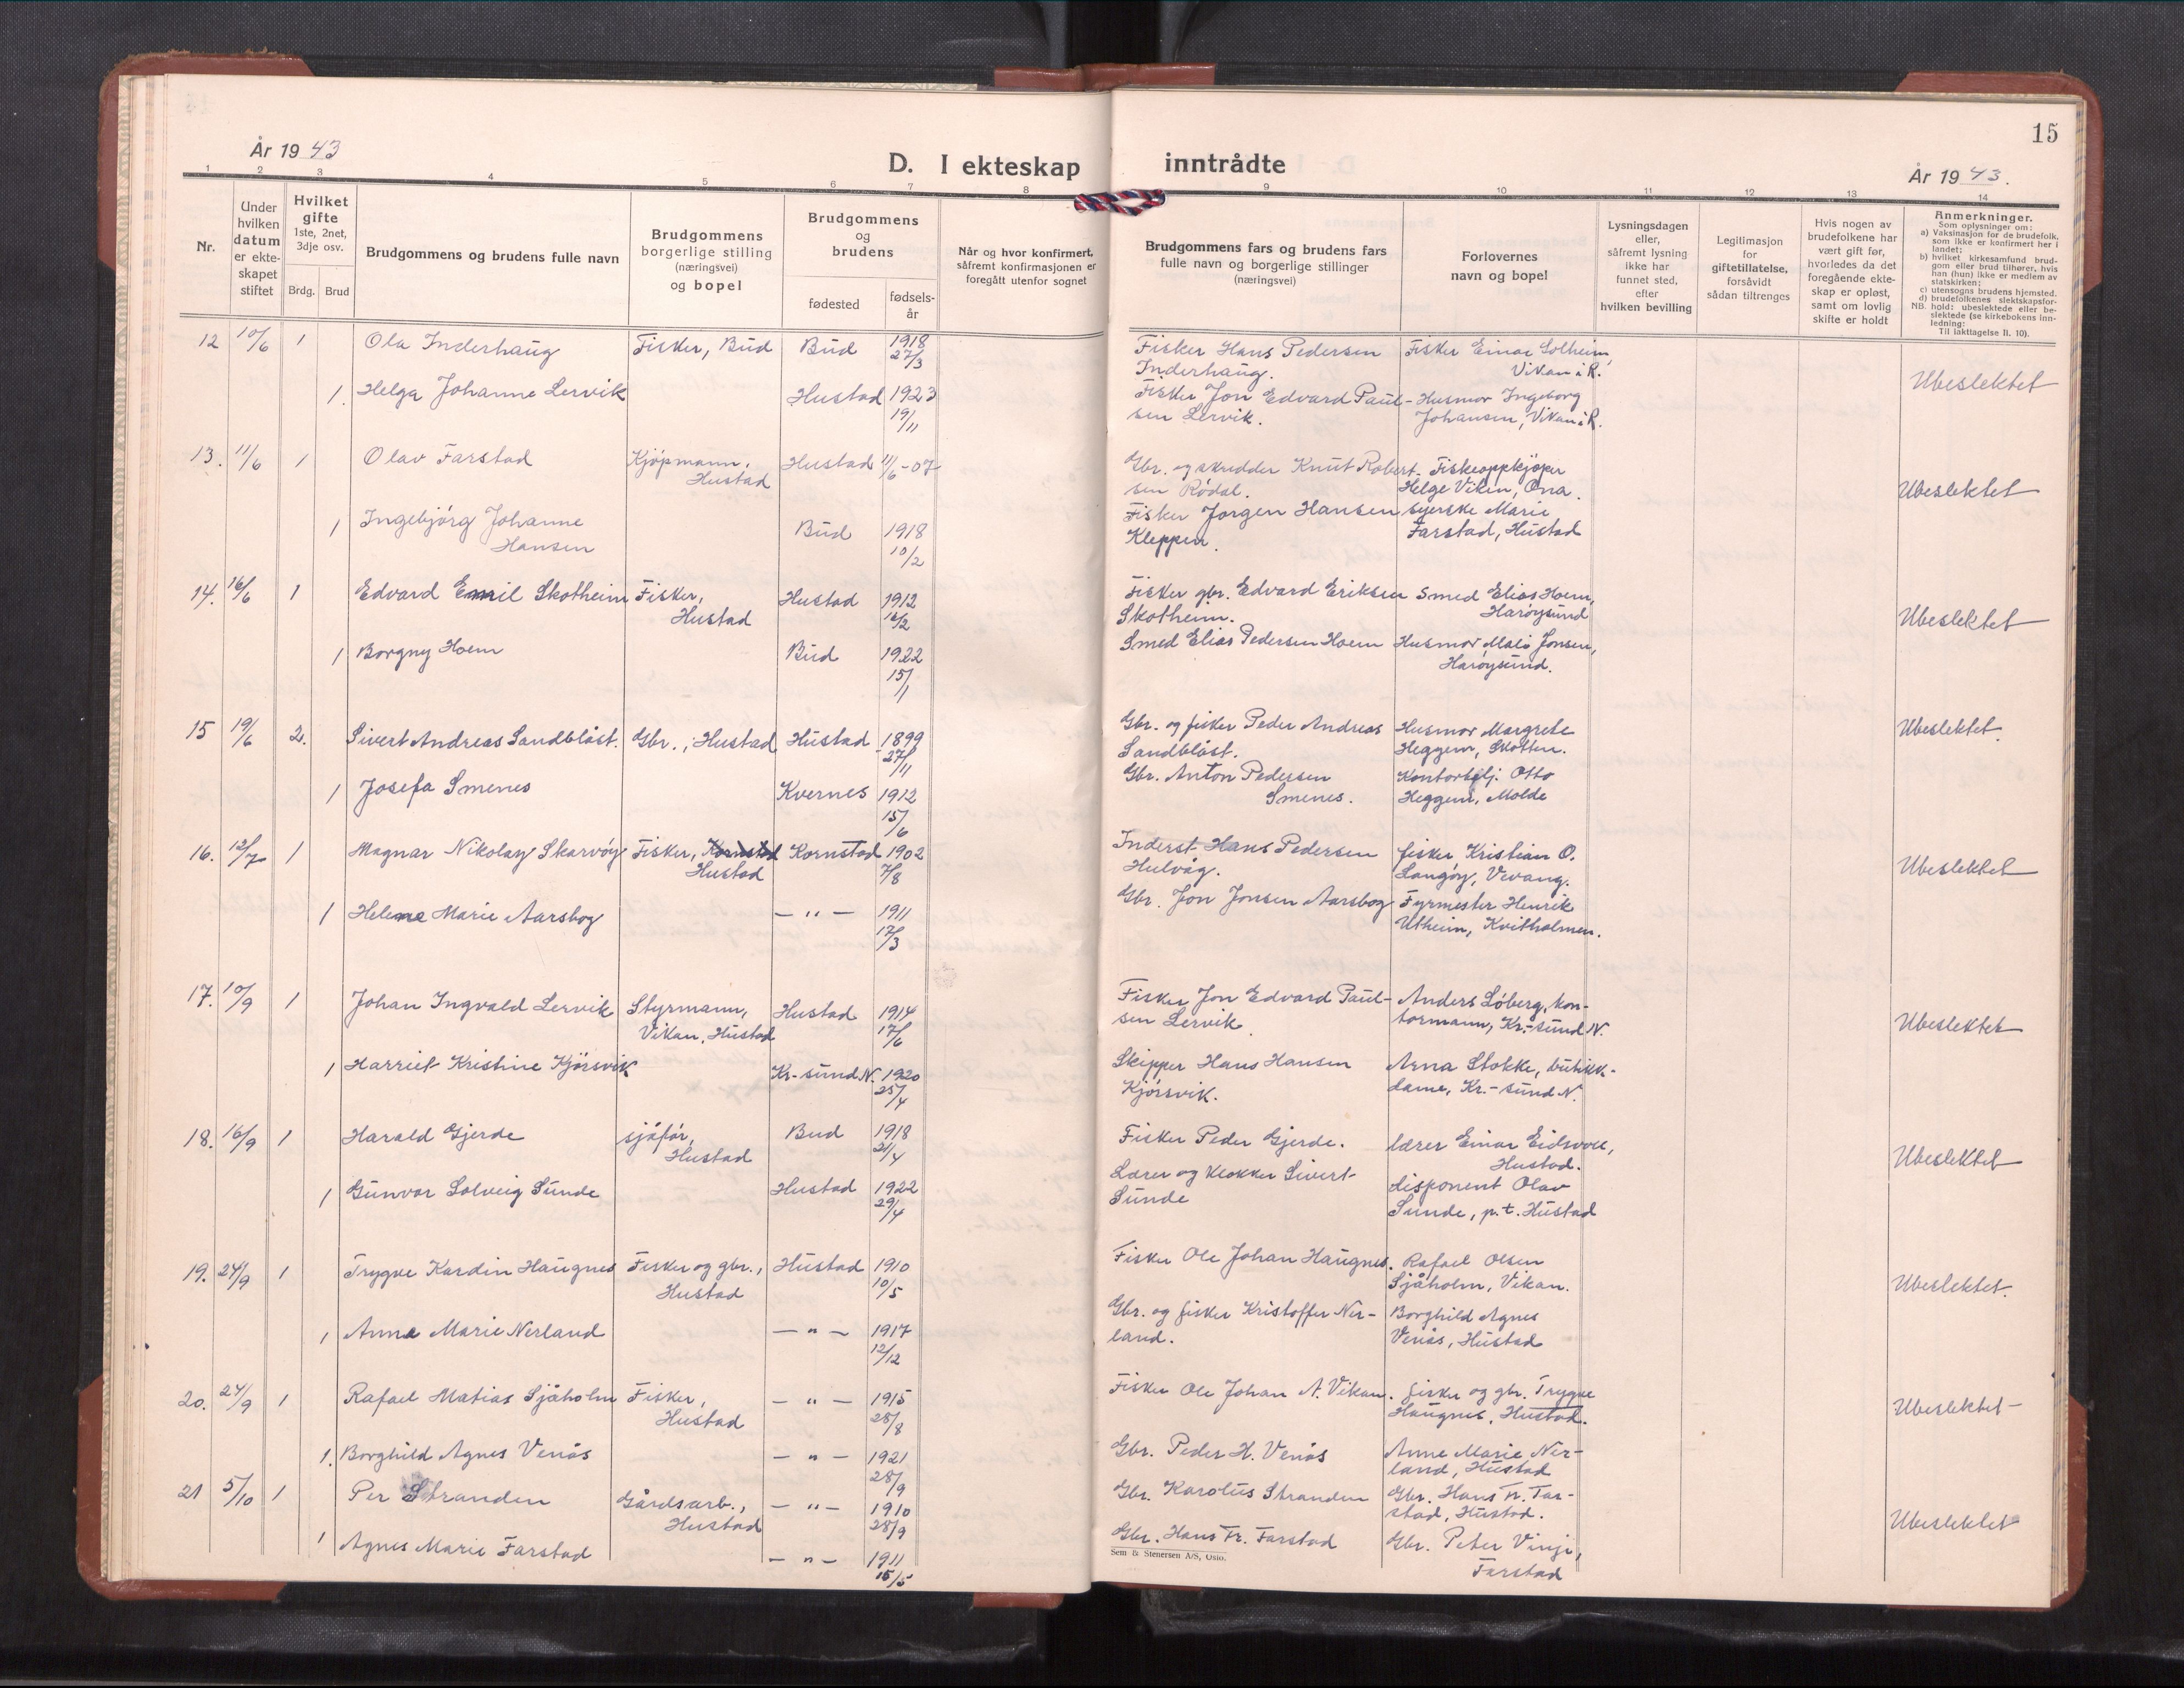 15
År 1943
D. I ekteskap inntrådte
År 1943.
1 2 3 4 5 6 7 8 9 10 11 12 13 14
Nr.
Under hvilken datum er ekteskapet stiftet
Hvilket gifte 1ste, 2net, 3dje osv.
Brdg. Brud
Brudgommens og brudens fulle navn
Brudgommens borgerlige stilling (næringsvei) og bopel
Brudgommens og brudens
fødested
fødselsår
Når og hvor konfirmert, såfremt konfirmasjonen er foregått utenfor sognet
Brudgommens fars og brudens fars fulle navn og borgerlige stillinger (næringsvei)
Forlovernes navn og bopel
Lysningsdagen eller, såfremt lysning ikke har funnet sted, efter hvilken bevilling
Legitimasjon for giftetillatelse, forsåvidt sådan tiltrenges
Hvis nogen av brudefolkene har vært gift før, hvorledes da det foregående ekteskap er opløst, samt om lovlig skifte er holdt
Anmerkninger.
Som oplysninger om:
a) Vaksinasjon for de brudefolk, som ikke er konfirmert her i landet;
b) hvilket kirkesamfund brudgom eller brud tilhører, hvis han (hun) ikke er medlem av statskirken;
c) utensogns brudens hjemsted.
d) brudefolkenes slektskapsforhold: ubeslektede eller beslektede (se kirkebokens innledning:
NB. Til iakttagelse II. 10).
12 10/6 1 Ola Inderhaug Fisker, Bud Bud 1918 27/3 Fisker Hans Pedersen Inderhaug. Fisker Einar Solheim, Vikan i R. Ubeslektet
1. Helga Johanne Lervik Hustad 1923 19/11 Fisker Jon Edvard Paulsen Lervik. Husmor Ingeborg Johansen, Vikan i R.
13. 11/6 1 Olav Farstad Kjöpmann, Hustad Hustad 11/6-07 Gbr. og skredder Knut Robertsen Rödal. Fiskeoppkjöper Helge Viken, Ona. Ubeslektet
1 Ingebjörg Johanne Hansen Bud 1918 10/2 Fisker Jörgen Hansen Kleppen. Syerske Marie Farstad, Hustad
14. 16/6 1 Edvard Emil Skotheim Fisker, Hustad Hustad 1912 16/2 Fisker gbr. Edvard Eriksen Skotheim. Smed Elias Hoem, Haröysund Ubeslektet
1 Borgny Hoem Bud 1922 15/1 Smed Elias Pedersen Hoem Husmor Mali Jonsen, Haröysund.
15 19/6 2. Sivert Andreas Sandblåst. Gbr., Hustad Hustad 1899 27/11 Gbr. og fisker Peder Andreas Sandblåst. Husmor Margrete Heggem, Skotten. Ubeslektet.
1 Josefa Smenes Kvernes 1912 15/6 Gbr. Anton Pedersen Smenes. Kontorbtj. Otto Heggem, Molde
16. 12/7 1 Magnar Nikolay Skarvöy Fisker, Kornstad Hustad Kornstad 1902 7/8 Inderst Hans Pedersen Hulvåg. fisker Kristian O. Langöy, Vevang. Ubeslektet
1 Helene Marie Aarsbog — " — 1911 17/3 Gbr. Jon Jonsen Aarsbog Fyrmester Henrik Utheim, Kvitholmen.
17. 10/9 1 Johan Ingvald Lervik Styrmann, Vikan, Hustad Hustad 1914 17/6 Fisker Jon Edvard Paulsen Lervik. Anders Löberg, kontormann, Kr.-sund N. Ubeslektet
1 Harriet Kristine Kjörsvik Kr-sund N. 1920 25/4 Skipper Hans Hansen Kjörsvik. Arna Stokke, butikkdame, Kr.-sund N.
18. 16/9 1 Harald Gjerde sjåför, Hustad Bud 1918 21/4 Fisker Peder Gjerde. lærer Einar Eidsvoll, Hustad. Ubeslektet
1 Gunvor Solveig Sunde Hustad 1922 29/4 Lærer og klokker Sivert Sunde disponent Olav Sunde, p.t. Hustad
19. 24/9 1 Trygve Kardin Haugnes Fisker og gbr., Hustad Hustad 1910 10/5 Fisker Ole Johan Haugnes. Rafael Olsen Sjåholm, Vikan. Ubeslektet.
1 Anna Marie Nerland — " — 1917 12/12 Gbr. og fisker Kristoffer Nerland. Borghild Agnes Venås, Hustad
20. 24/9 1 Rafael Matias Sjåholm Fisker, Hustad — " — 1915 28/8 Fisker Ole Johan A. Vikan. fisker og gbr. Trygve Haugnes, Hustad. Ubeslektet
1. Borghild Agnes Venås — " — 1921 28/9 Gbr. Peder H. Venås Anne Marie Nerland, Hustad
21 5/10 1 Per Stranden Gårdsarb., Hustad — " — 1910 28/9 Gbr. Karolus Stranden Gbr. Hans Fr. Farstad, Hustad. Ubeslektet
1 Agnes Marie Farstad — " — 1911 15/5 Gbr. Hans Fr. Farstad Gbr. Peter Vinje, Farstad
Sem & Stenersen A/S, Oslo.